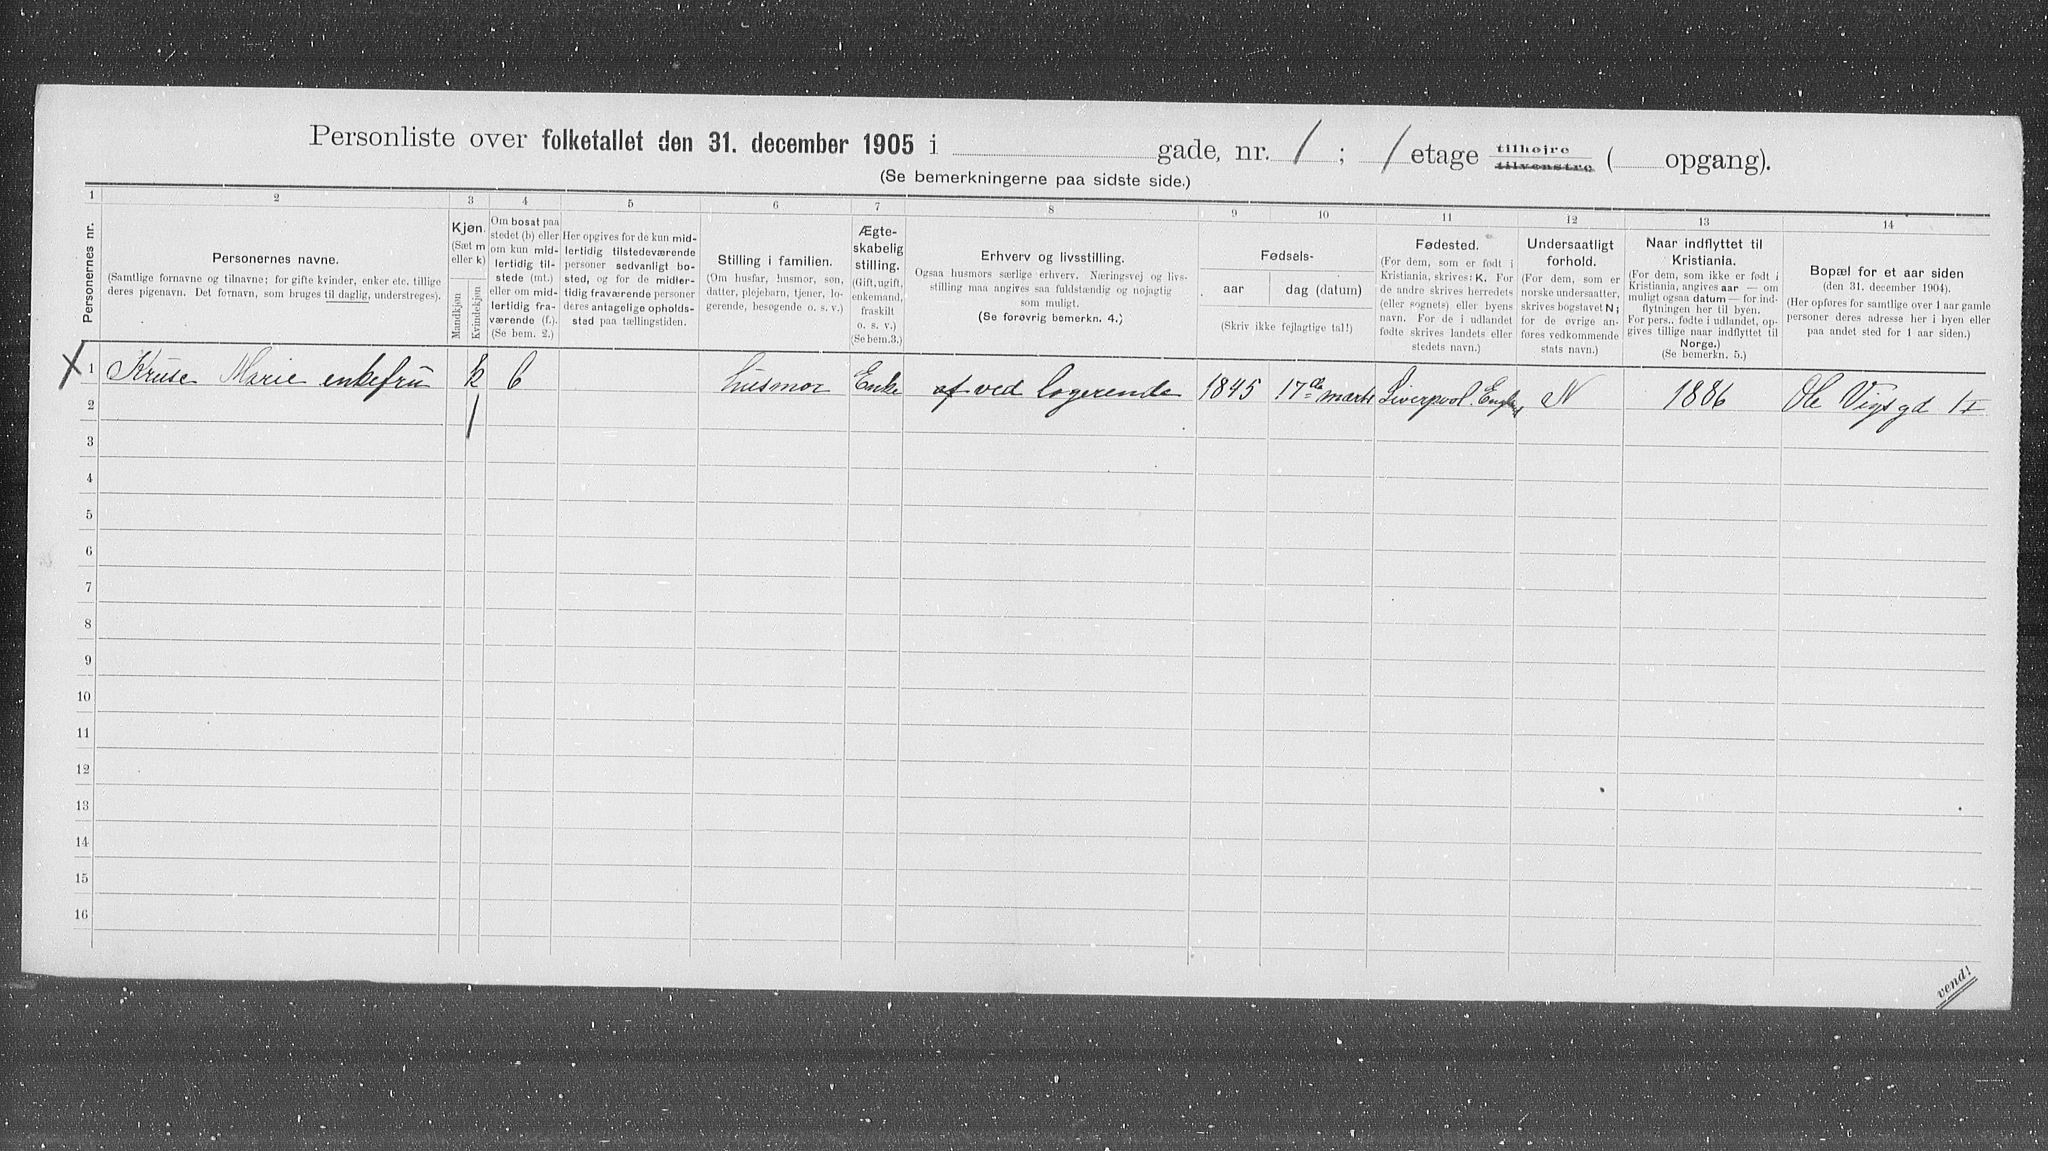 Personliste over folketallet den 31. december 1905 i gade, nr. 1 ; 1 etage tilhøjre tilvenstre ( opgang).
(Se bemerkningerne paa sidste side.)
1 2 3 4 5 6 7 8 9 10 11 12 13 14
Personernes nr.
Personernes navne.
(Samtlige fornavne og tilnavne; for gifte kvinder, enker etc. tillige
deres pigenavn. Det fornavn, som bruges til daglig, understreges).
Kjøn.
(Sæt m
eller k)
Mandkjøn
Kvindekjøn
Om bosat paa
stedet (b) eller
om kun mid-
lertidig til-
stede (mt.)
eller om mid-
lertidig fra-
værende (f.).
(Se bem. 2.)
Her opgives for de kun mid-
lertidig tilstedeværende
personer sedvanligt bo-
sted, og for de midler-
tidig fraværende personer
deres antagelige opholds-
sted paa tællingstiden.
Stilling i familien.
(Om husfar, husmor, søn,
datter, plejebarn, tjener, lo-
gerende, besøgende o. s. v.)
Ægte-
skabelig
stilling.
(Gift, ugift,
enkemand,
fraskilt
o. s. v.)
(Se bem.3.)
Erhverv og livsstilling.
Ogsaa husmors særlige erhverv. Næringsvej og livs-
stilling maa angives saa fuldstændig og nøjagtig
som muligt.
(Se forøvrig bemerkn. 4.)
Fødsels-
aar dag (datum)
(Skriv ikke fejlagtige tal!)
Fødested.
(For dem, som er født i
Kristiania, skrives: K. For
de andre skrives herredets
(eller sognets) eller byens
navn. For de i udlandet
fødte skrives landets eller
stedets navn.)
Undersaatligt
forhold.
(For dem, som er
norske undersaatter,
skrives bogstavet N;
for de øvrige an-
føres vedkommende
stats navn.)
Naar indflyttet til
Kristiania.
(For dem, som ikke er født i
Kristiania, angives aar — om
muligt ogsaa datum — for ind-
flytningen her til byen.
For pers., fødte i udlandet, op-
gives tillige naar indflyttet til
Norge.)
(Se bemerkn. 5.)
Bopæl for et aar siden
(den 31. december 1904).
(Her opføres for samtlige over 1 aar gamle
personer deres adresse her i byen eller
paa andet sted for 1 aar siden.)
X 1 Kruse Marie enkefru k b husmor Enke af ved logerende 1845 17de marts Liverpool. England N 1886 Ole Vigs gd 1 I
2 1
3
4
5
6
7
8
9
10
11
12
13
14
15
16
vend!